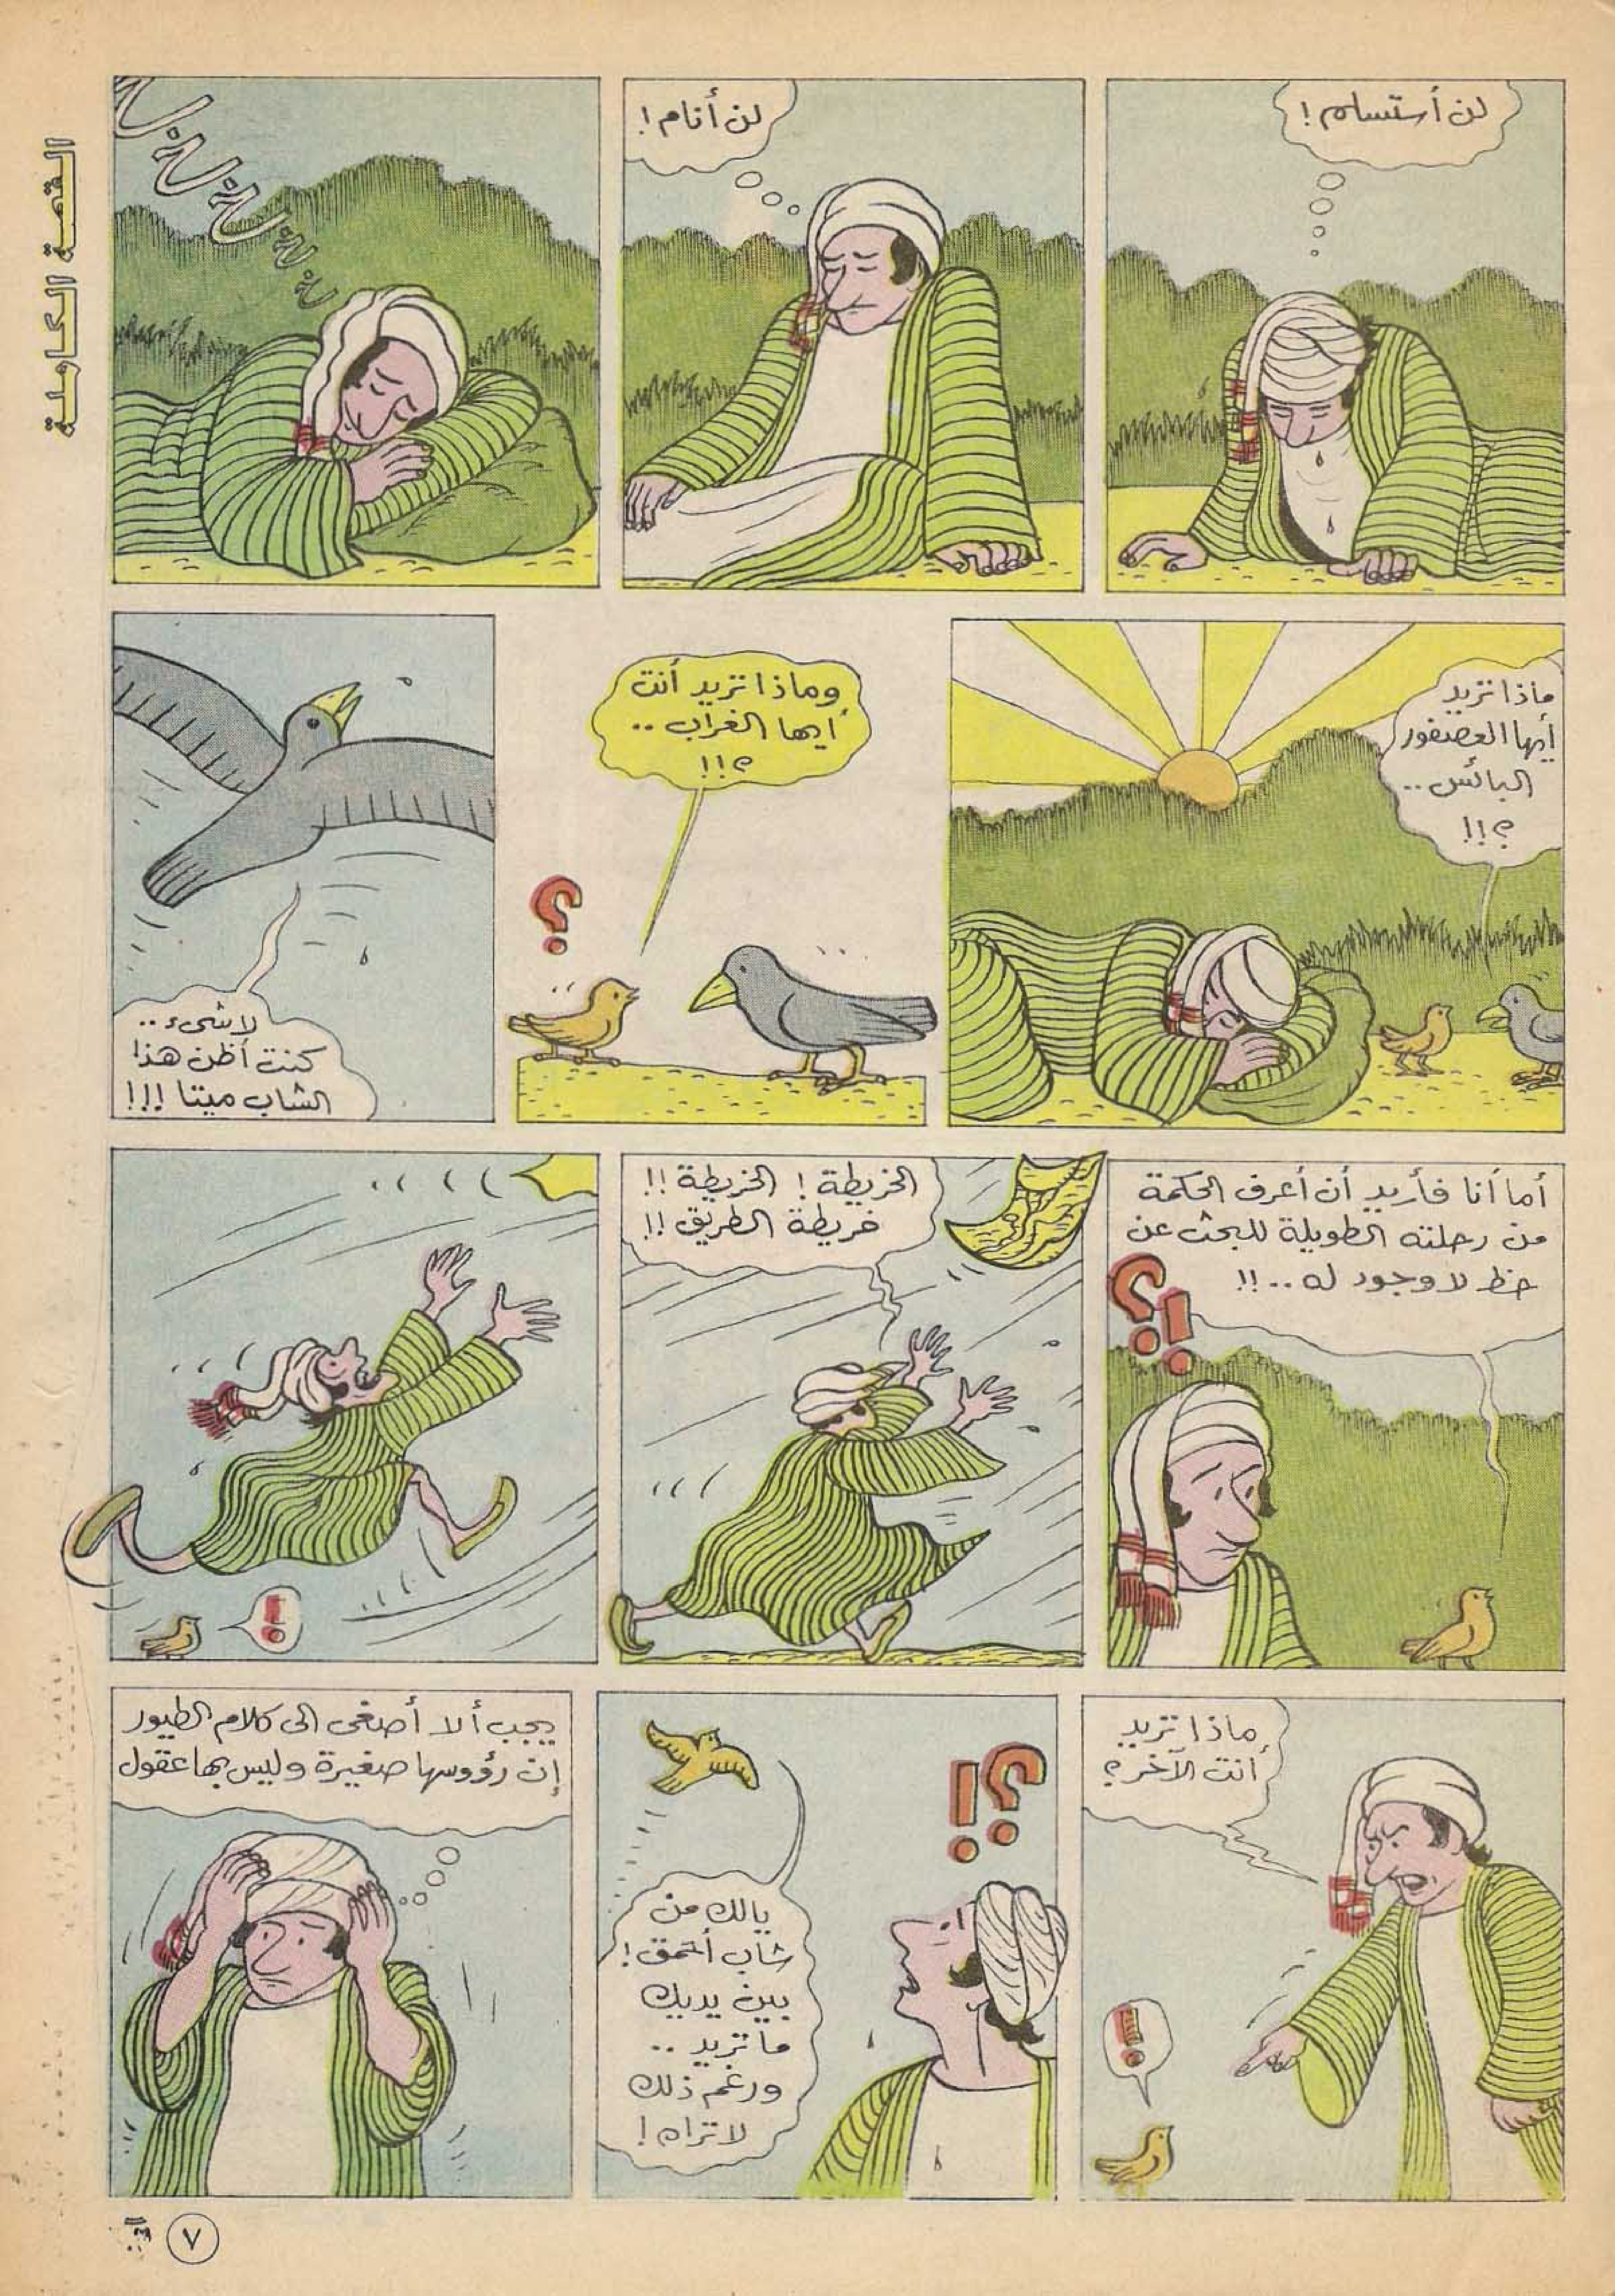 القصة الكاملة
لن أستسلم !
لن أنام !
خ خ خ خ خ
ماذا تريد
أيها العصفور
البائس ..
؟!!
وماذا تريد أنت
أيها الغراب ..
؟!!
؟
لا شىء ..
كنت أظن هذا
الشاب ميتا !!!
أما أنا فأريد أن أعرف الحكمة
من رحلته الطويلة للبحث عن
حظ لا وجود له .. !!
؟!
الخريطة ! الخريطة !!
خريطة الطريق !!
!
ماذا تريد
أنت الآخر ؟
!
؟!
يالك من
شاب أحمق !
بين يديك
ما تريد ..
ورغم ذلك
لا تراه !
يجب ألا أصغى الى كلام الطيور
إن رؤوسها صغيرة وليس بها عقول
٧